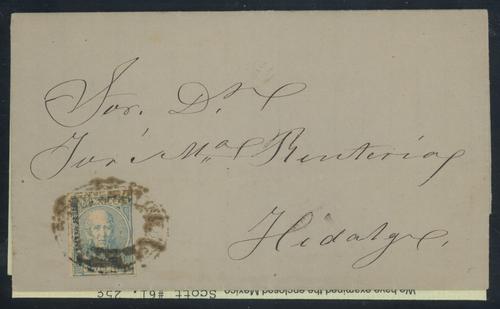 Sor. Dn.
José Ma. Rentería
Hidalgo.
We have examined the enclosed Mexico
Scott #61. 25¢